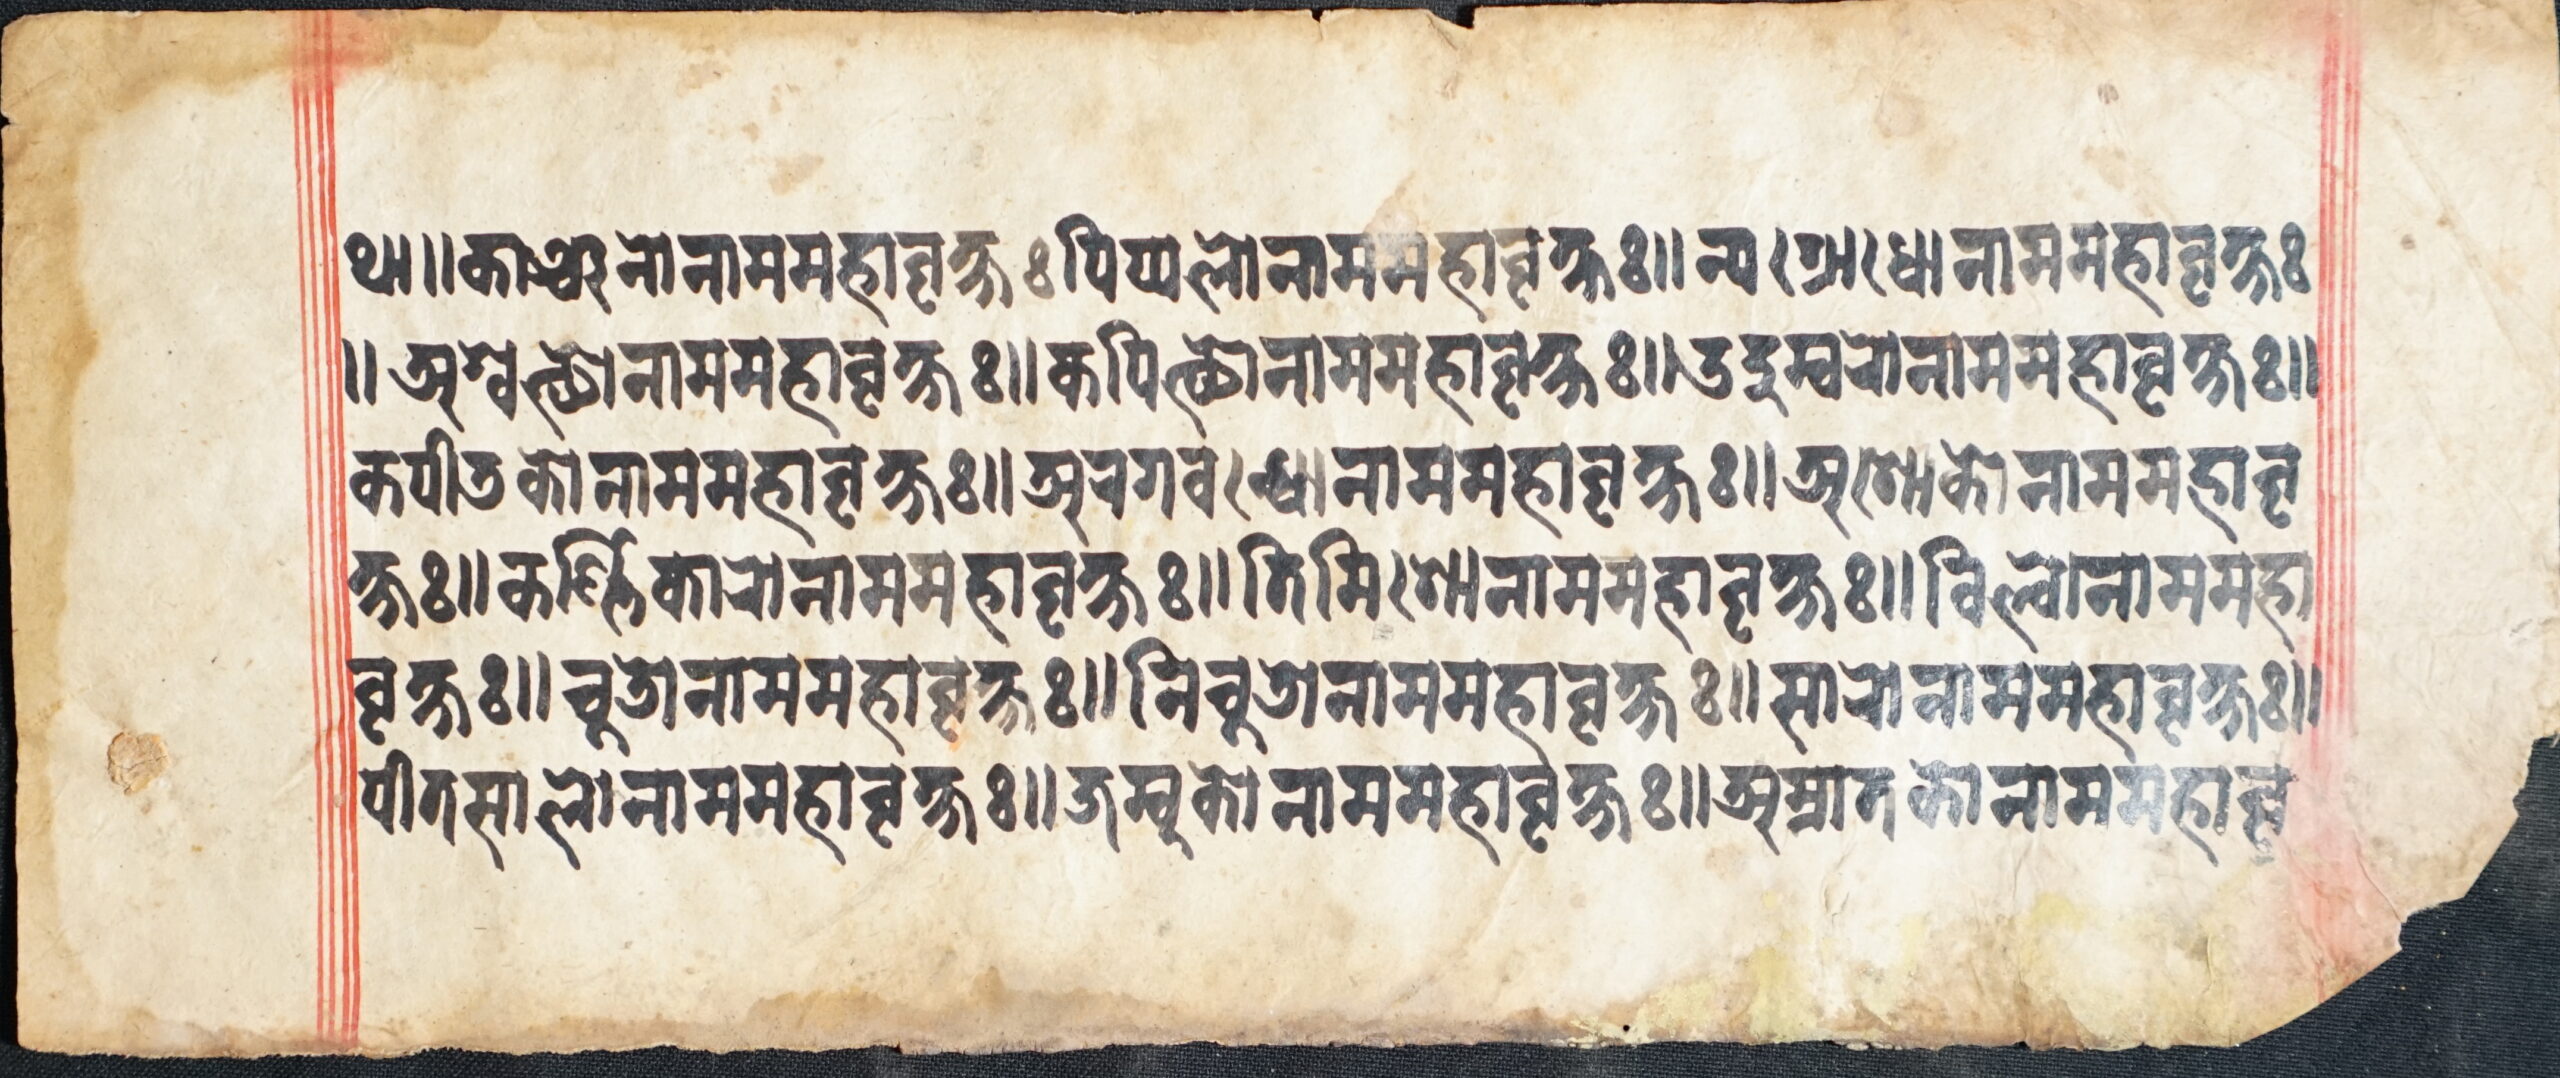 था॥काञ्चनोनाममहावृक्षःपिप्पलोनाममहावृक्षः॥न्यग्रोधोनाममहावृक्षः
॥अश्वत्थोनाममहावृक्षः॥कपित्थोनाममहावृक्षः॥उदुम्बरोनाममहावृक्षः॥
कपीतकोनाममहावृक्षः॥अरगवन्धोनाममहावृक्षः॥अशोकोनाममहावृ
क्षः॥कर्ण्णिकारोनाममहावृक्षः॥तिमिशोनाममहावृक्षः॥विल्वोनाममहा
वृक्षः॥चुतोनाममहावृक्षः॥निचुतोनाममहावृक्षः॥सारोनाममहावृक्षः॥
पीतसालोनाममहावृक्षः॥जम्बुकोनाममहावृक्षः॥अम्रातकोनाममहावृ